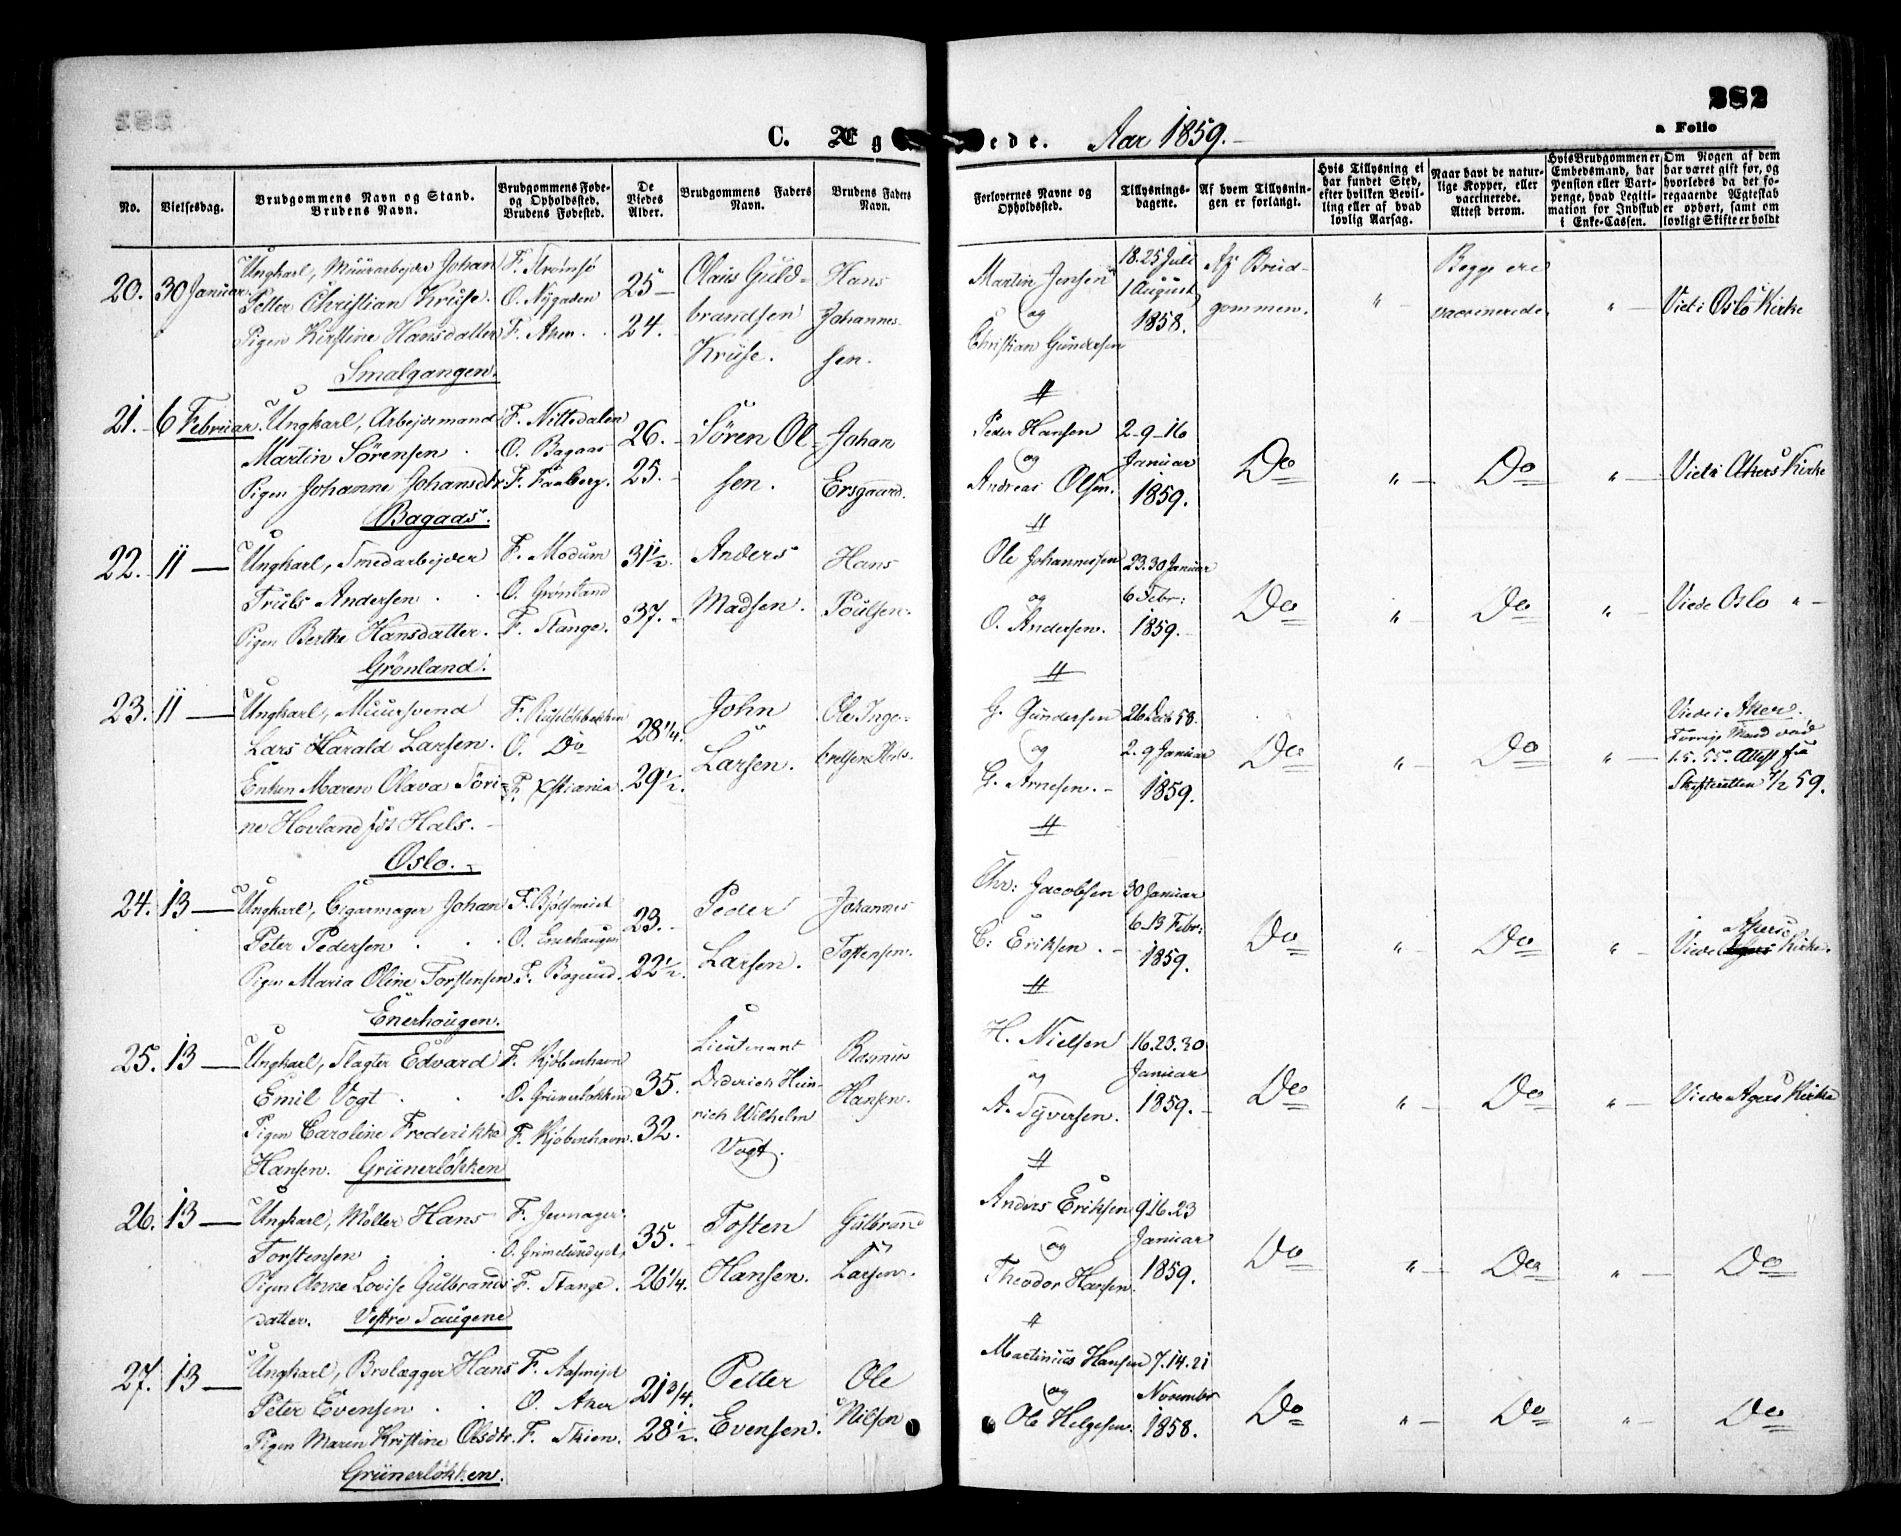 282
a Folio
C. Æg ede. Aar 1859.
No.
Vielsesdag.
Brudgommens Navn og Stand.
Brudens Navn.
Brudgommens Føde-
og Opholdssted.
Brudens Fødested.
De
Viedes
Alder.
Brudgommens Faders
Navn.
Brudens Faders
Navn.
Forlovernes Navne og
Opholdssted.
Tillysnings-
dagene.
Af hvem Tillysnin-
gen er forlangt.
Hvis Tillysning ei
har fundet Sted,
efter hvilken Bevil-
ling eller af hvad
lovlig Aarsag.
Naar havt de natur-
lige Kopper, eller
vaccinerede.
Attest derom.
Hvis Brudgommen er
Embedsmand, har
Pension eller Vart-
penge, hvad Legiti-
mation for Indskud
i Enke-Cassen.
Om Nogen af dem
har været gift før, og
hvorledes da det fo-
regaaende Ægteskab
er ophørt, samt om
lovligt Skifte er holdt
20. 30 Januar.
Ungkarl, Muurarbejder Johan
Petter Christian Kruse.
Pigen Kirstine Hansdatter
Smalgangen.
F. Strømsø
O. Nygaden
F. Aker
25
24.
Olaus Guld-
brandsen
Kruse.
Hans
Johannes-
sen.
Martin Jensen
og
Christian Gundersen
18. 25 Juli
1 August
1858.
Af Brud-
gommen.
"
Begge ere
vaccinerede.
"
Vied i Oslo Kirke
21. 6 Februar.
Ungkarl, Arbejdsmand
Martin Sörensen
Pigen Johanne Johansdtr
Bagaas.
F. Nittedalen
O. Bagaas
F. Faaberg.
26.
25.
Sören Ol-
sen.
Johan
Ersgaard.
Peder Hansen
og
Andreas Olsen.
2-9-16
Januar
1859.
Do
"
Do
"
Vied i Akers Kirke
22. 11
Ungkarl, Smedarbejder
Truls Andersen
Pigen Berthe Hansdatter.
Grönland.
F. Modum
O. Grønland
F. Stange.
31 1/2.
37.
Anders
Madsen.
Hans
Poulsen.
Ole Johannessen
og
O. Andersen.
23. 30 Januar
6 Febr:
1859.
Do
"
Do
"
Viede Oslo "
23. 11
Ungkarl, Muursvend
Lars Harald Larsen.
Enken Maren Olava Töri-
ne Hovland föd Hals.
Oslo.
F. Ruseløkbakken
O. Do
F. Xstiania
28 1/4.
29 1/2.
John
Larsen.
Ole Inge-
bretsen Hals.
G. Gundersen
og
G. Arnesen.
26 Decb 58.
2. 9 Januar
1859.
Do
"
Do
"
Viede i Aker.
Forrige Mand død
1.5.55. Attest fra
Skifteretten 7/2 59.
24. 13
Ungkarl, Cigarmager Johan
Peter Pedersen
Pigen Maria Oline Torstensen
Enerhougen.
O. Enerhaugen
23.
22 1/2.
Peder
Larsen.
Johannes
Tostensen.
Chr: Jacobsen
C: Eriksen.
30 Januar
6. 13 Febr:
1859.
Do
"
Do
"
Viede Akers Kirke.
25. 13
Ungkarl, Slagter Edvard
Emil Vogt
Pigen Caroline Frederikke
Hansen. Grünerløkken
F. Kjøbenhavn
O. Grünerløkken
F. Kjøbenhavn.
35.
32.
Lieutenant
Diderich Hein-
rich Wilhelm
Vogt.
Rasmus
Hansen.
H. Nielsen
og
A. Syversen.
16. 23. 30
Januar
1859.
Do
"
Do
"
Viede Agers Kirke
26. 13
Ungkarl, Møller Hans
Torstensen
Pigen Anne Lovise Gulbrands
datter. Vestre Saugene
F. Jevnager
F. Stange.
35.
26 1/4.
Tosten
Hansen.
Gulbrand
Larsen.
Anders Eriksen
og
Theodor Hansen.
9 16. 23
Januar
1859.
Do
"
Do
"
Do
27. 13
Ungkarl, Brolægger Hans
Peter Evensen
Pigen Maren Kristine Olsdtr.
Grünerløkken.
O. Aker
F. Skien.
21 3/4.
28 1/2.
Petter
Evensen.
Ole
Nilson
Martinius Hansen
og
Ole Helgesen.
7. 14. 21
November
1858.
Do
"
Do
"
Do